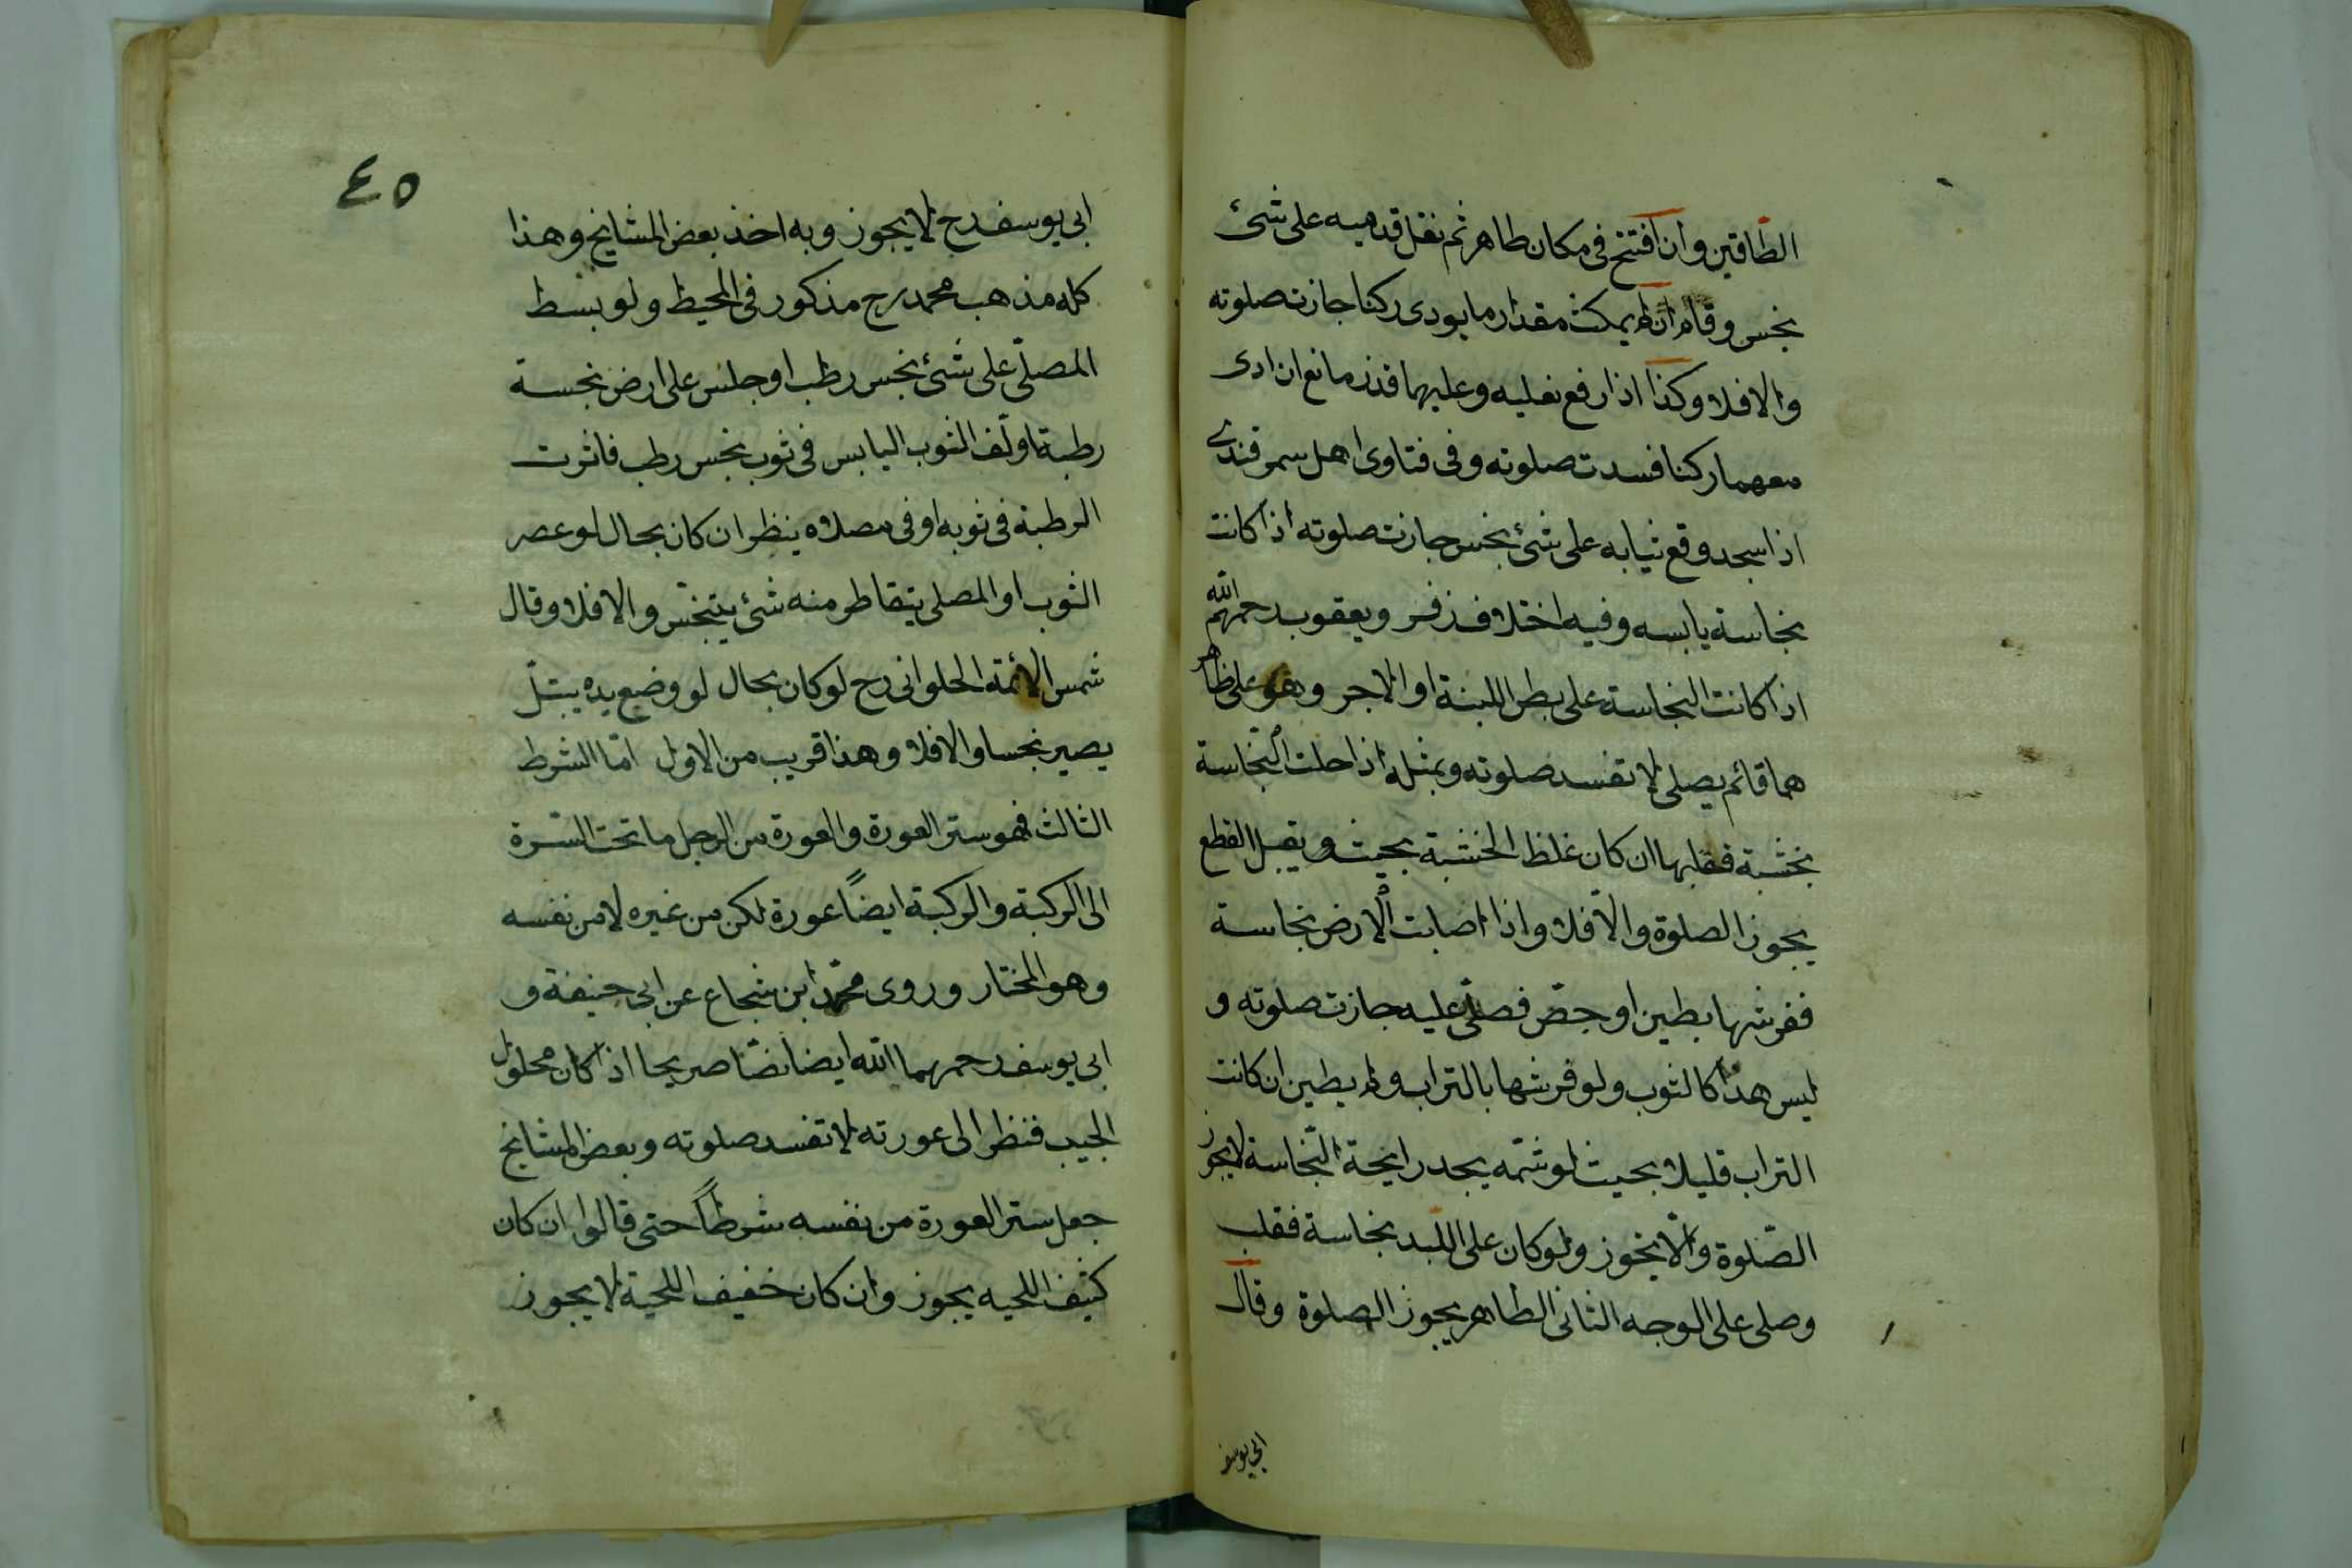 الطاقين وان افتتح فى مكان طاهر ثم نقل قدميه على شئ
نجس وقام ان لم يمكث مقدار ما يودى ركنا جازت صلوته
والا فلا وكذا اذا رفع نعليه وعليهما قذر مانع ان ادى
معهما ركنا فسدت صلوته وفى فتاوى اهل سمرقندى
اذا سجد وقع ثيابه على شئ نجس جازت صلوته اذا كانت
نجاسة يابسه وفيه اختلاف زفر ويعقوب رحمهم الله
اذا كانت النجاسة على بطن اللبنة او الاجر وهو على ظاهر
هما قائم يصلى لا تفسد صلوته وبمثله اذا حلت النجاسة
بخشبة فقلبها ان كان غلظ الخشبة بحيث يقبل القطع
يجوز الصلوة والا فلا واذا اصابت الارض نجاسة
ففرشها بطين او جص فصلى عليه جازت صلوته و
ليس هذا كالثوب ولو فرشها بالتراب ولم يطين ان كانت
التراب قليلا بحيث لو شمه يجد رايحة النجاسة لا يجوز
الصلوة والا يجوز ولو كان على اللبد نجاسة فقلب
وصلى على الوجه الثانى الطاهر يجوز الصلوة وقال
ابى يوسف
٤٥
ابى يوسف رح لا يجوز وبه اخذ بعض المشايخ وهذا
كله مذهب محمد رح مذكور فى المحيط ولو بسط
المصلى على شئ نجس رطب او جلس على ارض نجسة
رطبة او لف الثوب اليابس فى ثوب نجس رطب فاثرت
الرطبة فى ثوبه او فى مصلاه ينظر ان كان بحال لو عصر
الثوب او المصلى يتقاطر منه شئ يتنجس والا فلا وقال
شمس الائمة الحلوانى رح لو كان بحال لو وضع يده يبتل
يصير نجسا والا فلا وهذا قريب من الاول اما الشرط
الثالث فهو ستر العورة والعورة من الرجل ما تحت السرة
الى الركبة والركبة ايضاً عورة لكن من غيره لا من نفسه
وهو المختار وروى محمد ابن شجاع عن ابى حنيفة و
ابى يوسف رحمهما الله ايضا نصا صريحا اذا كان محلول
الجيب فنظر الى عورته لا تفسد صلوته وبعض المشايخ
جعل ستر العورة من نفسه شرطاً حتى قالوا ان كان
كثيف اللحيه يجوز وان كان خفيف اللحية لا يجوز